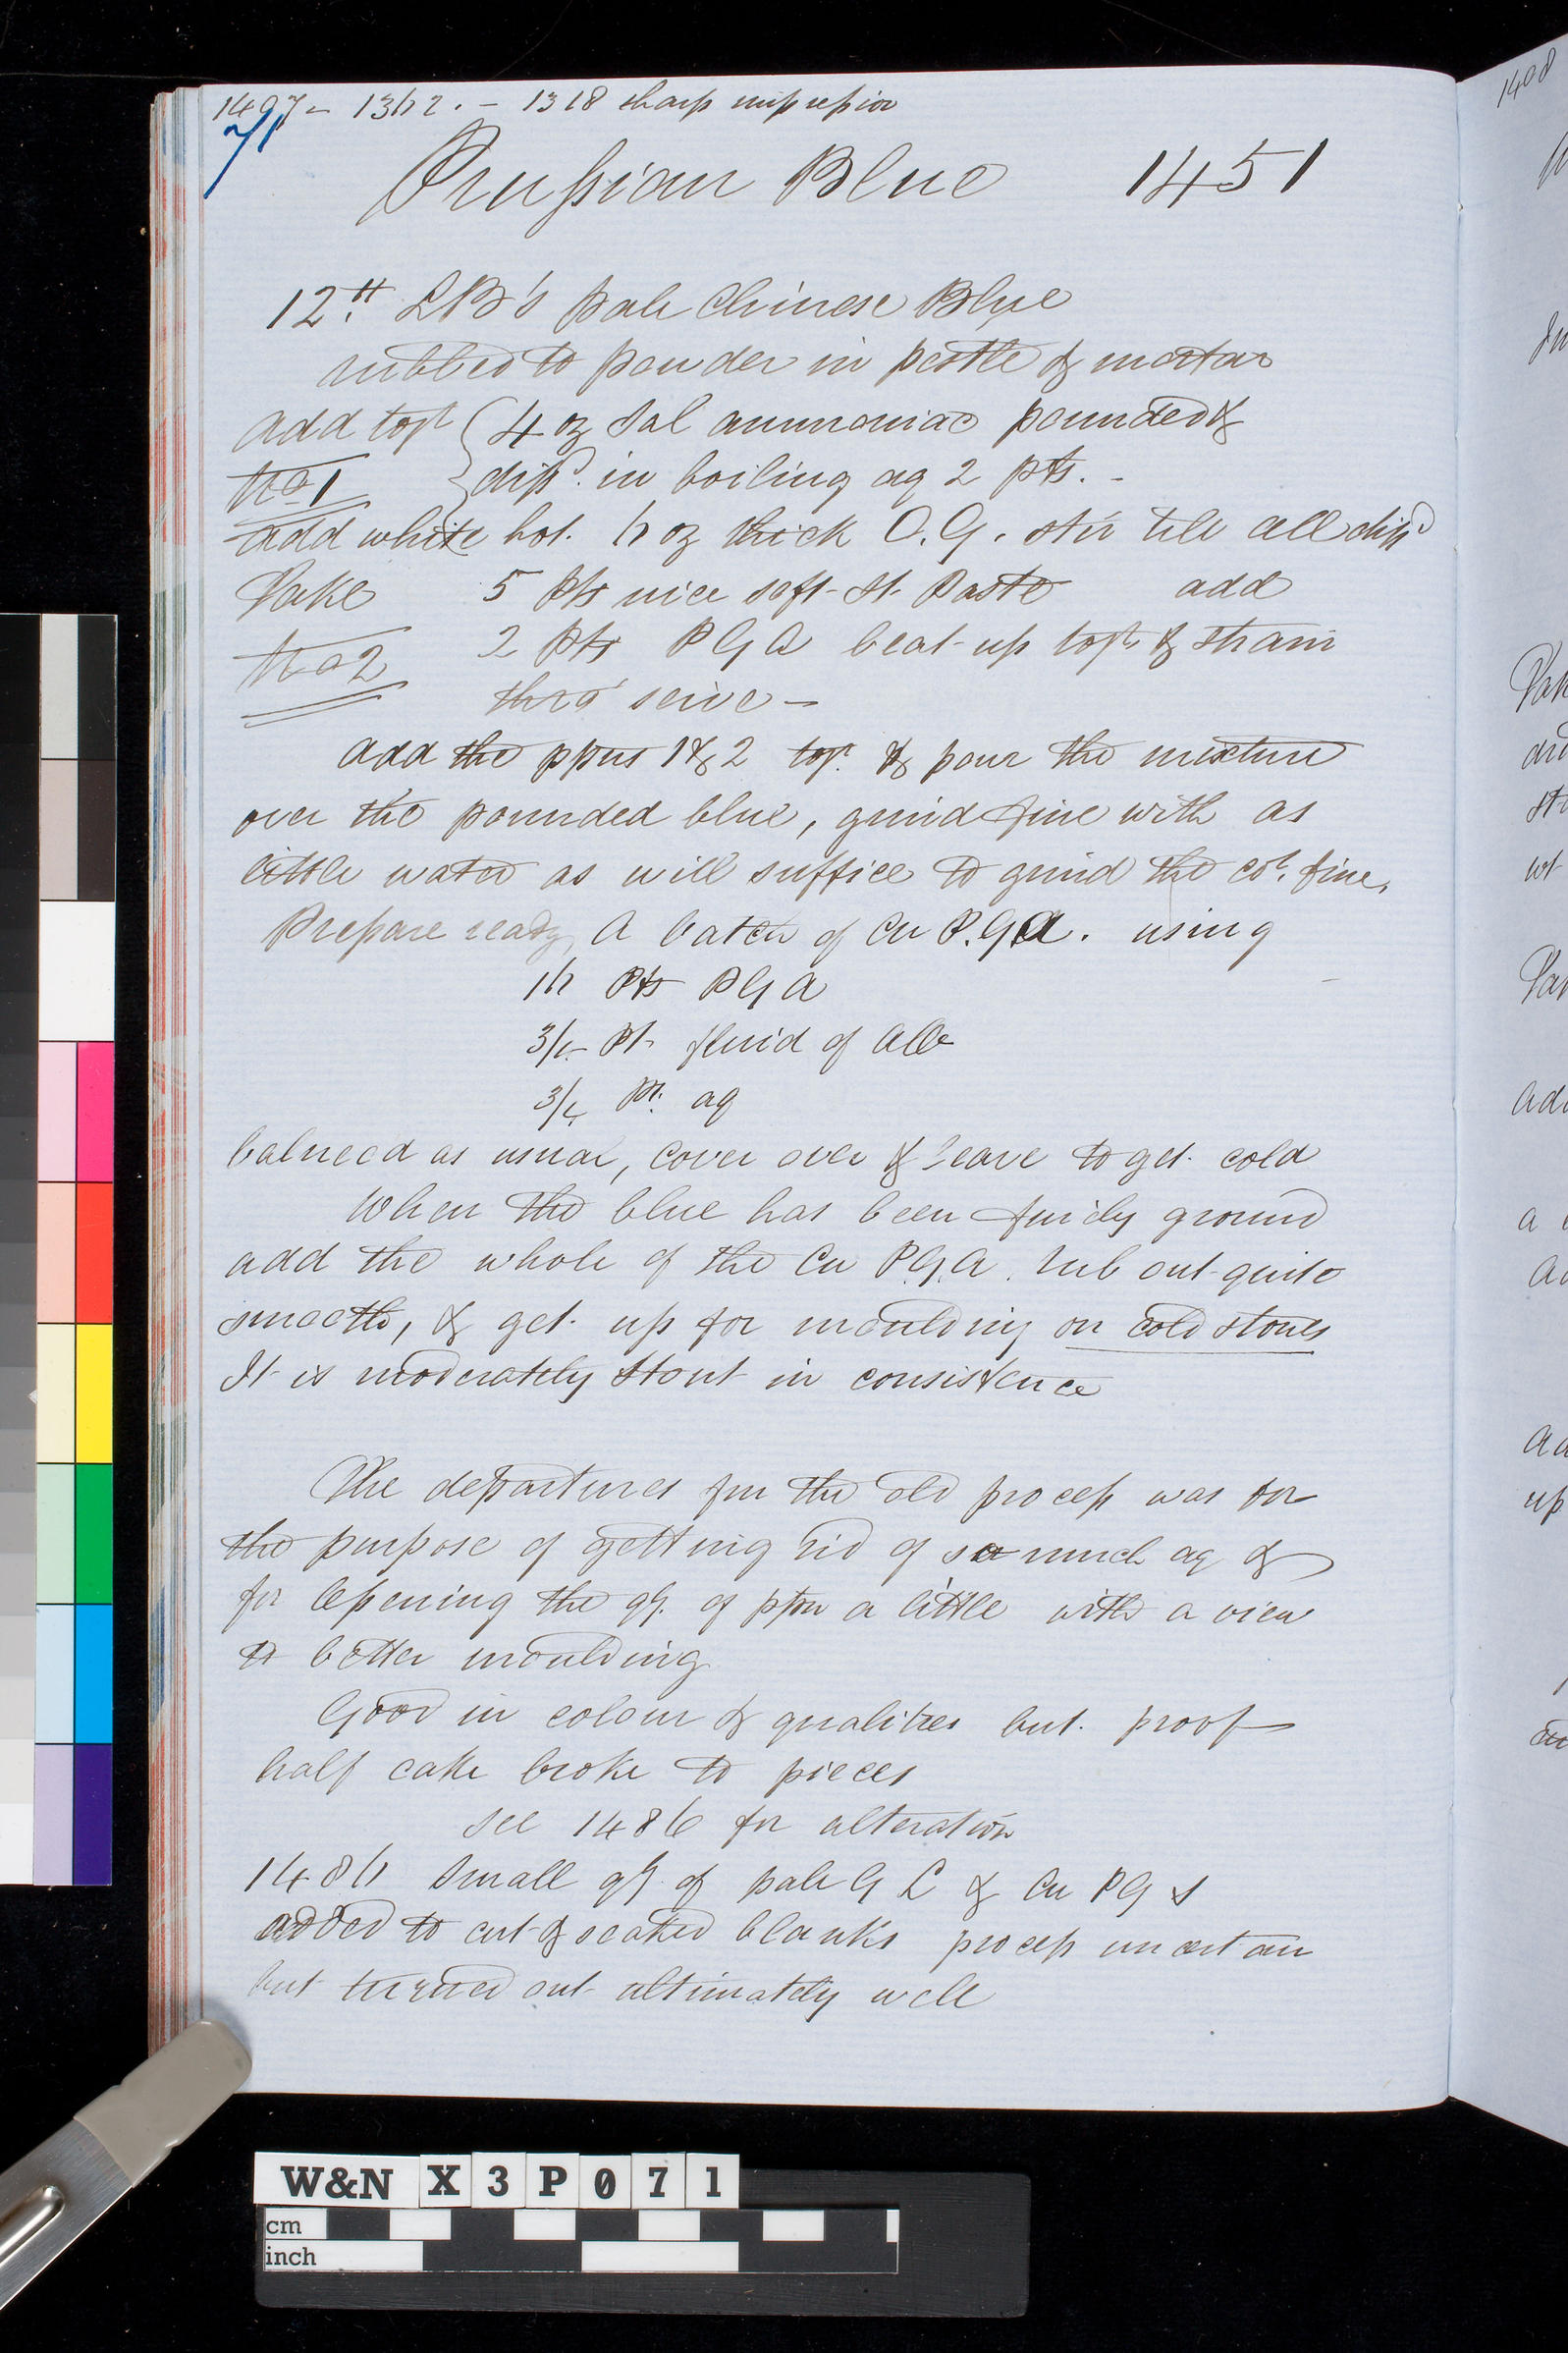 1497 - 1362. - 1318 sharp impression
71
Prussian Blue 1451
12 lb. LB's pale Chinese Blue
rubbed to powder in pestle & mortar
add togr { 4 oz Sal ammoniac pounded &
No 1 { dissd. in boiling aq 2 pts. -
add while hot. 6 oz thick O.G. stir till all dissd
Take 5 Pts nice soft St. Paste add
No 2 2 Pts PGA beat up togr & strain
thro' seive -
add the ppns 1 & 2 togr. & pour the mixture
over the pounded blue, grind fine with as
little water as will suffice to grind the colr. fine.
Prepare ready, A batch of Cu P.G.A. using
16 Pts PGA
3/4 Pt. fluid of Alb
3/4 Pt. aq
balneoed as usual, cover over & leave to get cold
When the blue has been finely ground
add the whole of the Cu P.G.A. rub out quite
smooth, & get up for moulding on cold stones
It is moderately stout in consistence
The departures fm the old process was for
the purpose of getting rid of so much aq &
for lessening the qy. of ppn a little with a view
to better moulding
Good in colour & qualities but proof
half cake broke to pieces
see 1486 for alteration
1486 Small qy. of pale G L & Cu PG S
added to cut & soaked blanks process uncertain
but turned out ultimately well
1408
W&N X3P071
cm
inch